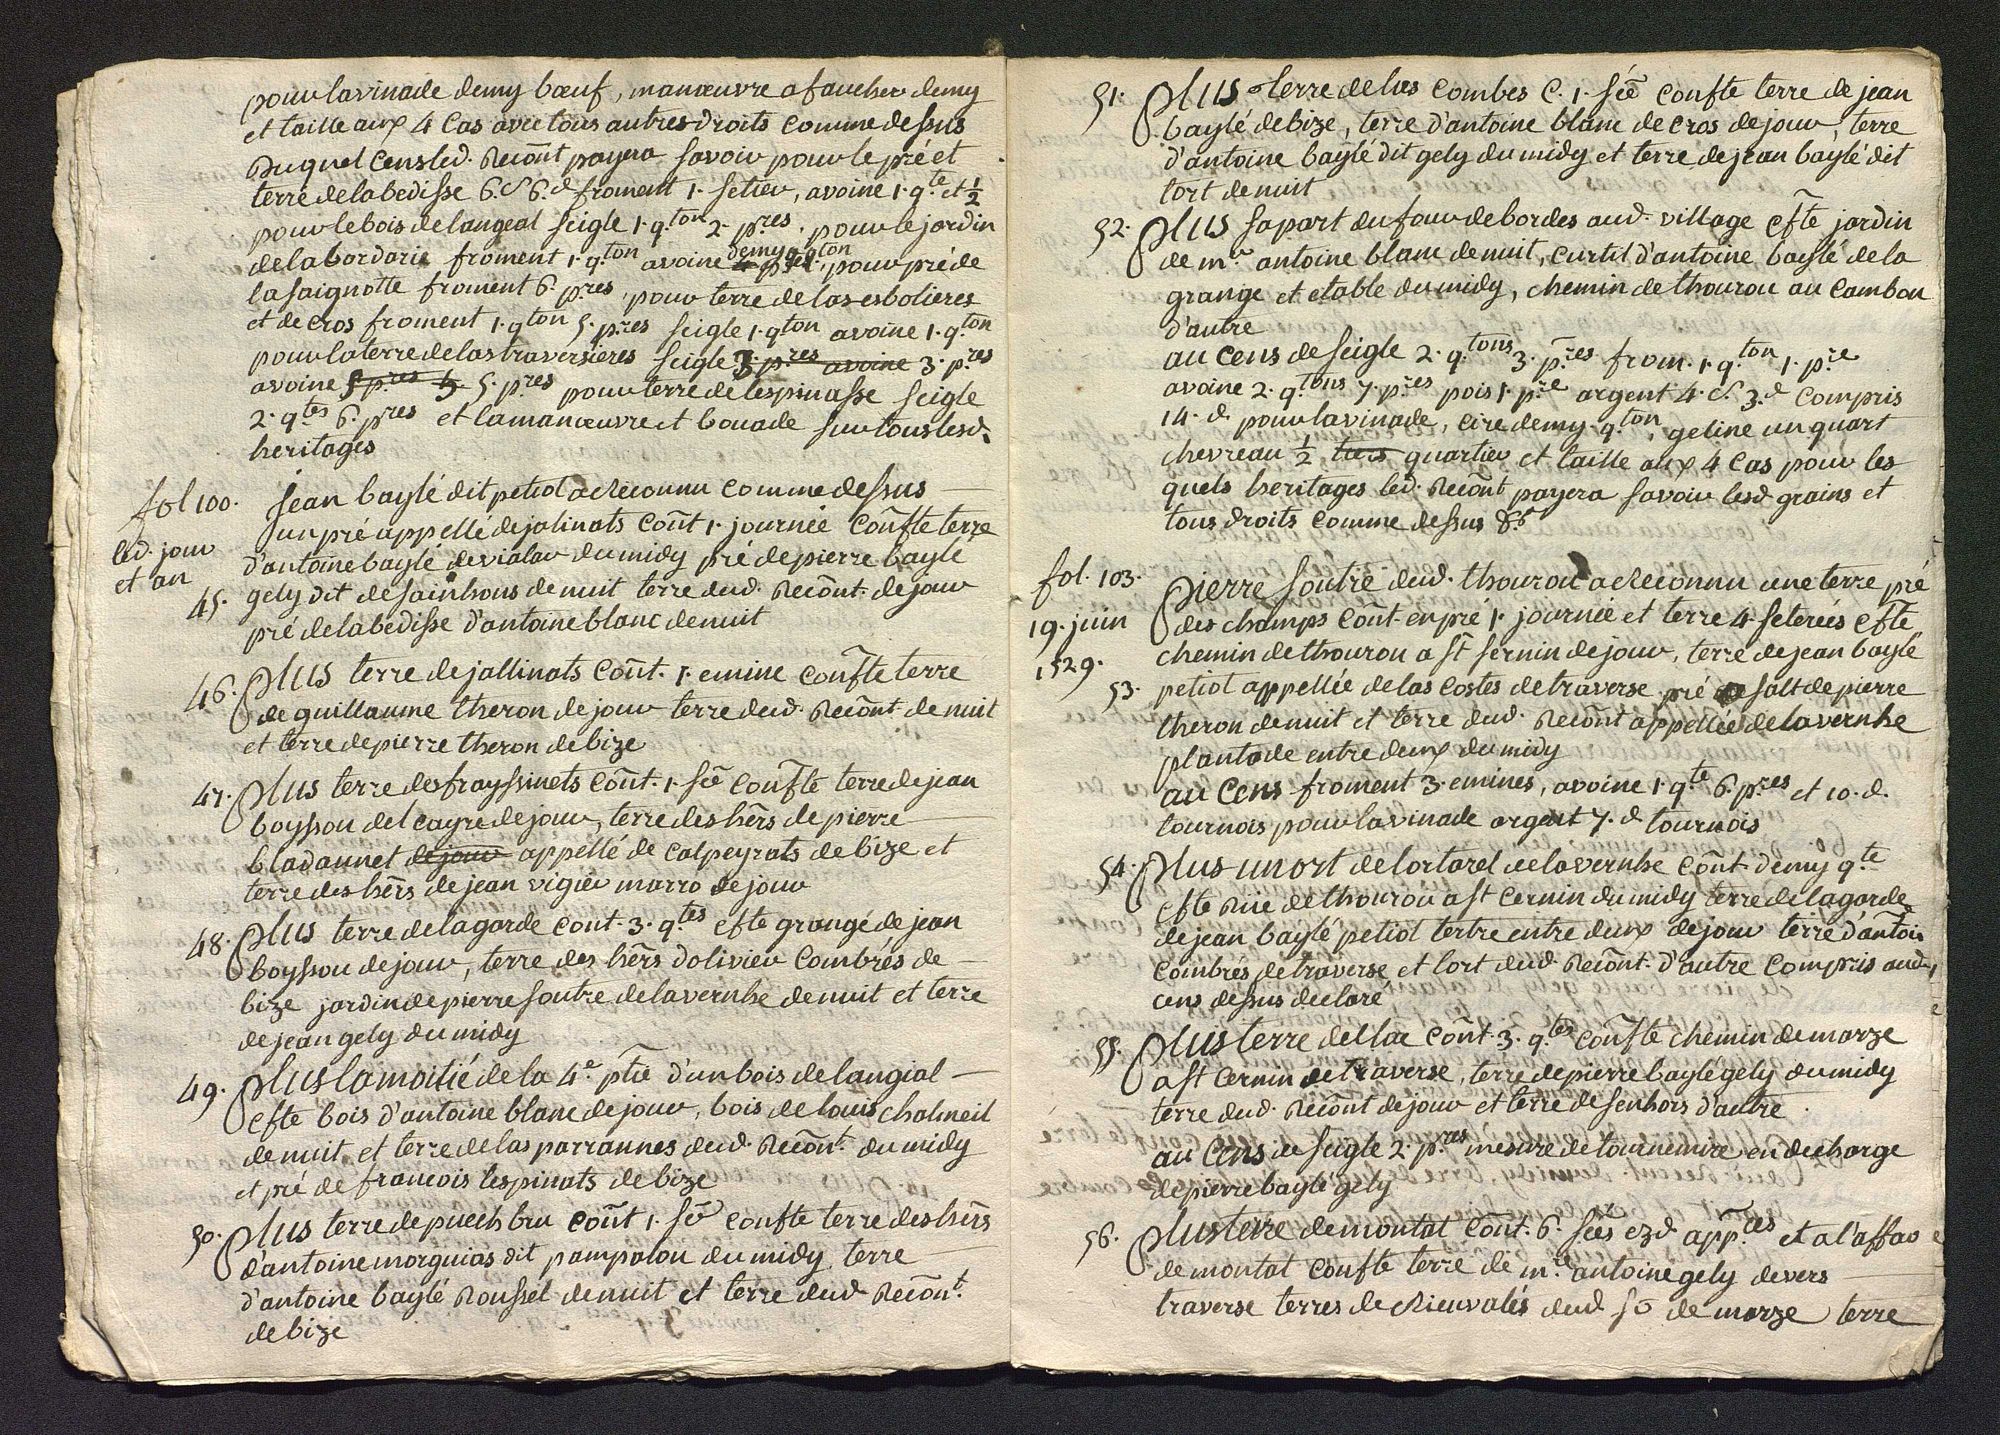 pour lavinade demy bœuf, manœuvre a faucher demy
et taille aux 4 Cas avec tous autres droits comme dessus
Duquel cens led. Recoñt payera savoir pour le pré et
terre de la bedisse 6.s 6.d froment 1. setier, avoine 1. q.te et ½
pour le bois de langeal seigle 1. q.ton 2. p.res, pour le jardin
de la bordarie froment 1. q.ton avoine demy q.ton, pour pré de
la saignotte froment 6 p.res, pour terre de las esbolieres
et de cros froment 1. q.ton 5. p.res seigle 1. q.ton avoine 1. q.ton
pour la terre de las traversieres seigle 3. p.res avoine 3. p.res
avoine 5 p.res 5. 5. p.res pour terre de lespinasse seigle
2. q.tes 6. p.res et la manœuvre et bouade sur tous lesd.
heritages
fol 100. Jean baylé dit petiol a Reconnu comme dessus
un pré appellé de jalinats coñt 1. journée coñfte terre
led. jour d'antoine baylé de vialar du midy pré de pierre baylé
et an
45. gely dit de sainhous de nuit terre dud. Recoñt. de jour
pré de la bedisse d'antoine blanc de nuit
46. Plus terre de jallinats coñt. 1. emine coñfte terre
de guillaume theron de jour terre dud. Recoñt de nuit
et terre de pierre theron de bize
47. Plus terre des frayssinets coñt. 1. sée coñfte terre de jean
boysson del cayre de jour, terre des hẽrs de pierre
bladannet de jour appellé de calpeyrats de bize et
terre des hẽrs de jean vigier marro de jour
48. Plus terre de la garde cont. 3. q.tes cfte grange de jean
boysson de jour, terre des hẽrs dolivier Combrés de
bize jardin de pierre soutre de la vernhe de nuit et terre
de jean gely du midy
49. Plus la moitié de la 4.e ptie d'un bois de langial
cfte bois d'antoine blanc de jour, bois de louis chalmeil
de nuit et terre de las parrannes dud. Recoñt. du midy
et pré de francois lespinats de bize
50. Plus terre de puech bru coñt 1. sée confte terre des hẽrs
d'antoine morguias dit pampalou du midy terre
d'antoine baylé Roussel de nuit et terre dud Recoñt.
de bize
51. Plus terre de las combes C. 1. sée confte terre de jean
baylé de bize, terre d'antoine blanc de cros de jour, terre
d'antoine baylé dit gely du midy et terre de jean baylé dit
tort de nuit
52. Plus sa part du four de bordes aud. village cfte jardin
de m.e antoine blanc de nuit, curtil d'antoine baylé de la
grange et etable du midy, chemin de thourou au cambon
d'autre
au cens de seigle 2. q.tons 3. p.res from. 1. q.ton 1. p.re
avoine 2. q.tons 7. p.res pois 1. p.re argent 4.s 3.d compris
14. d pour lavinade, cire demy q.ton, geline un quart
chevreau ½ tiers quartier et taille aux 4 Cas pour les
quels heritages led. Recoñt payera savoir lesd grains et
tous droits comme dessus &.a
fol. 103. Pierre soutre dud. thourou a Reconnu une terre pré
19. juin des champs coñt. en pre 1. journée et terre 4. seterées cfte
1529. chemin de thourou a st sernin de jour, terre de jean baylé
53. petiol appellée de las costes de traverse pré de salt de pierre
theron de nuit et terre dud. Recoñt appellée de la vernhe
plantade entre deux du midy
au cens froment 3. emines, avoine 1. q.te 6. p.res et 10. d.
tournois pour lavinade argent 7. d tournois
54. Plus un ort de lortarel de la vernhe coñt. demy q.te
cfte Rue de thourou a st cernin du midy terre de la garde
de jean baylé petiol tertre entre deux de jour terre d'antoi
combrés de traverse et lort dud. Recoñt. d'autre compris aud.
cens dessus declaré
55. Plus terre del lac coñt. 3. q.tes coñfte chemin de marze
a st cernin de traverse, terre de pierre baylé gely du midy
terre dud. Recoñt de jour et terre de senhors d'autre
au Cens de seigle 2. p.res mesure de tournemire en decharge
de pierre baylé gely
56. Plus terre de montat coñt. 6. sées ezd. app.ces et a l'affar
de montat confte terre de m.re antoine gely devers
traverse terres de Rieuvalés dud. sõ de marze terre